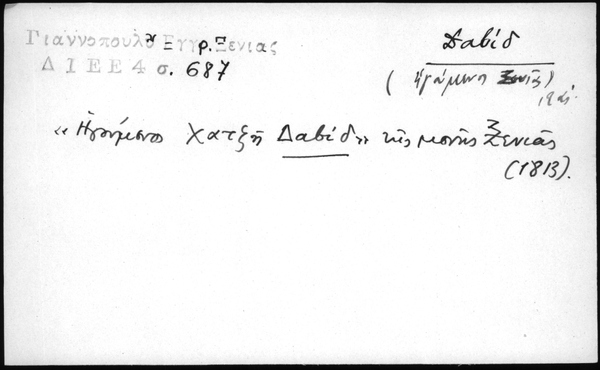 Γιαννοπουλου Εγγρ. Ξενιας
Δ Ι Ε Ε 4 σ. 687
Δαβίδ
(ἡγούμενος Ξενιᾶς)
19 αἰ.
«Ἡγούμενος Χατζῆ Δαβίδ» τῆς μονῆς Ξενιᾶς
(1813).